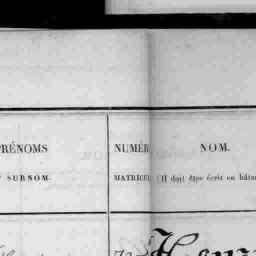 PRÉNOMS NUMÉR NOM.
SURNOM. MATRICUL (Il doit être écrit en bâtar